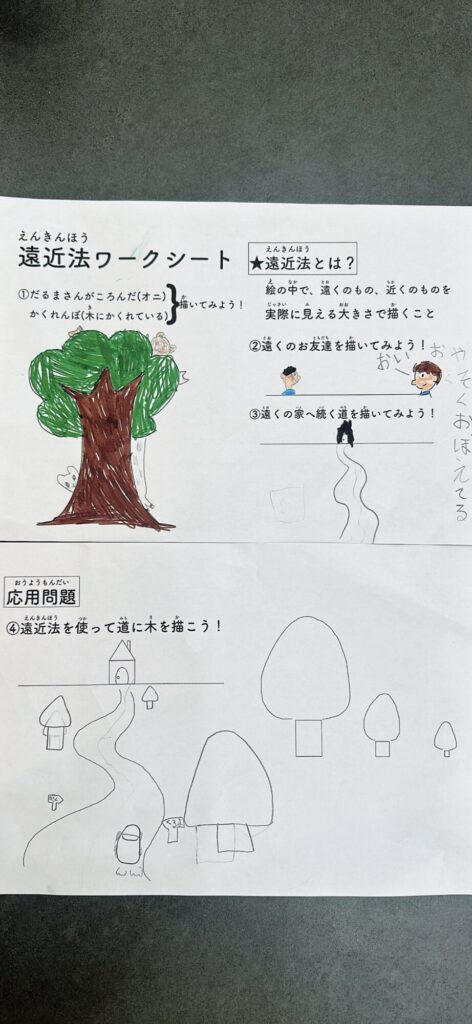 えんきんほう
遠近法ワークシート
①だるまさんがころんだ(オニ)
かくれんぼ(木にかくれている)
き
描いてみよう！
か
えんきんほう
★遠近法とは？
え なか とお ちか
絵の中で、遠くのもの、近くのものを
じっさい み おお か
実際に見える大きさで描くこと
とお ともだち か
②遠くのお友達を描いてみよう！
おーい
とお いえ つづ みち か
③遠くの家へ続く道を描いてみよう！
おうようもんだい
応用問題
えんきんほう つか みち き か
④遠近法を使って道に木を描こう！